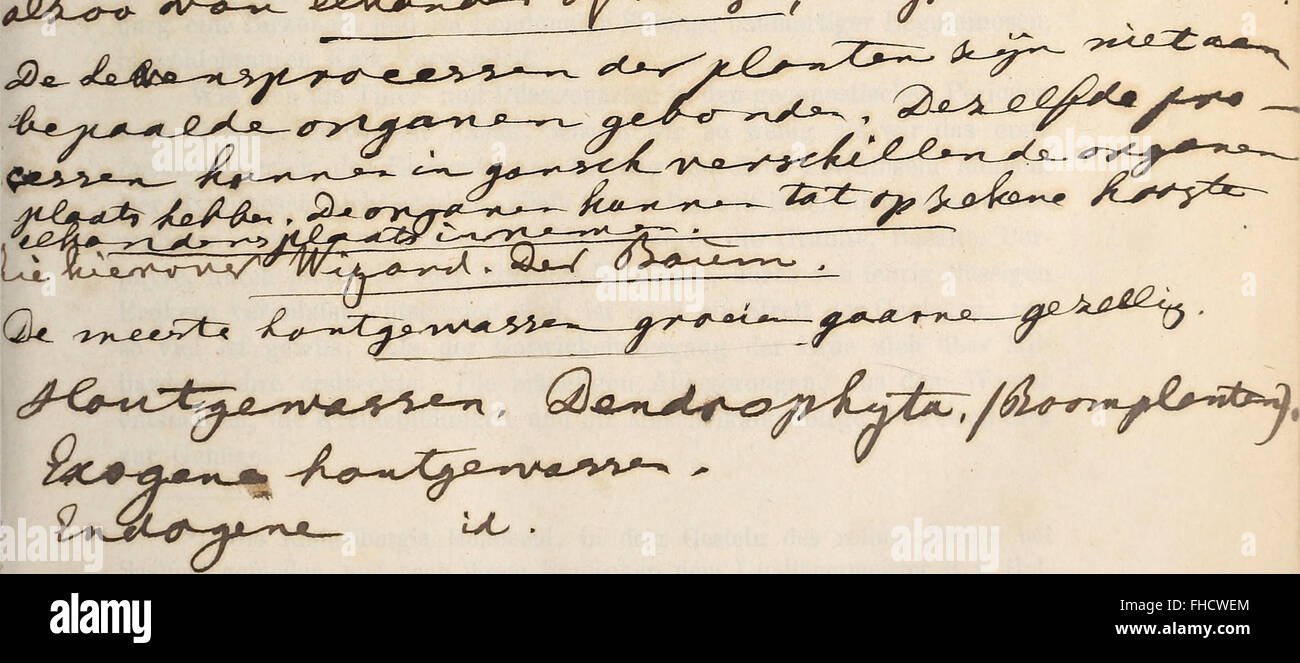 alzoo van elkander
De levensprocessen der planten zijn niet aan
bepaalde organen gebonden. Dezelfde pro-
cessen kunnen in gansch verschillende organen
plaats hebben. De organen kunnen tot op zekere hoogte
elkanders plaats innemen.
Zie hierover Wigand. Der Baum.
De meeste houtgewassen groeien gaarne gezellig.
Houtgewassen. Dendrophyta. (Boomplanten).
Exogene houtgewassen.
Endogene id.
alamy stock photo
FHCWEM
www.alamy.com